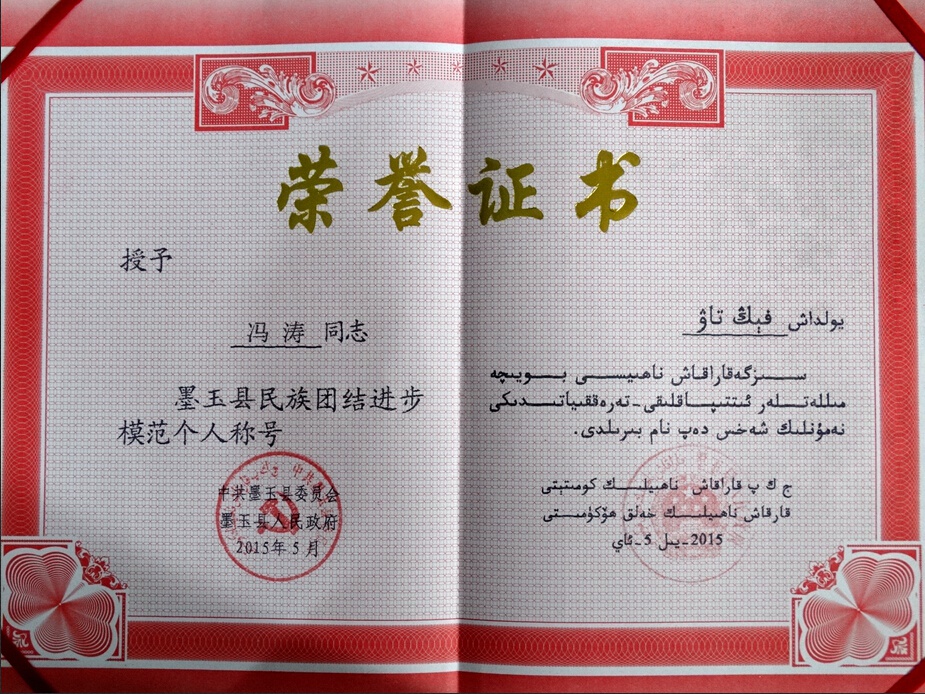 荣誉证书
授予
冯涛 同志
墨玉县民族团结进步
模范个人称号
中共墨玉县委员会
墨玉县人民政府
2015年5月
يولداش فېڭ تاۋ
سىزگەقاراقاش ناھىيىسى بويىچە
مىللەتلەر ئىتتىپاقلىقى-تەرەققىياتىدىكى
نەمۇنىلىك شەخس دەپ نام بىرىلدى.
ج ك پ قاراقاش ناھىيىلىك كومىتېتى
قارقاش ناھىيىلىك خەلق ھۆكۈمىتى
2015-يىل 5-ئاي